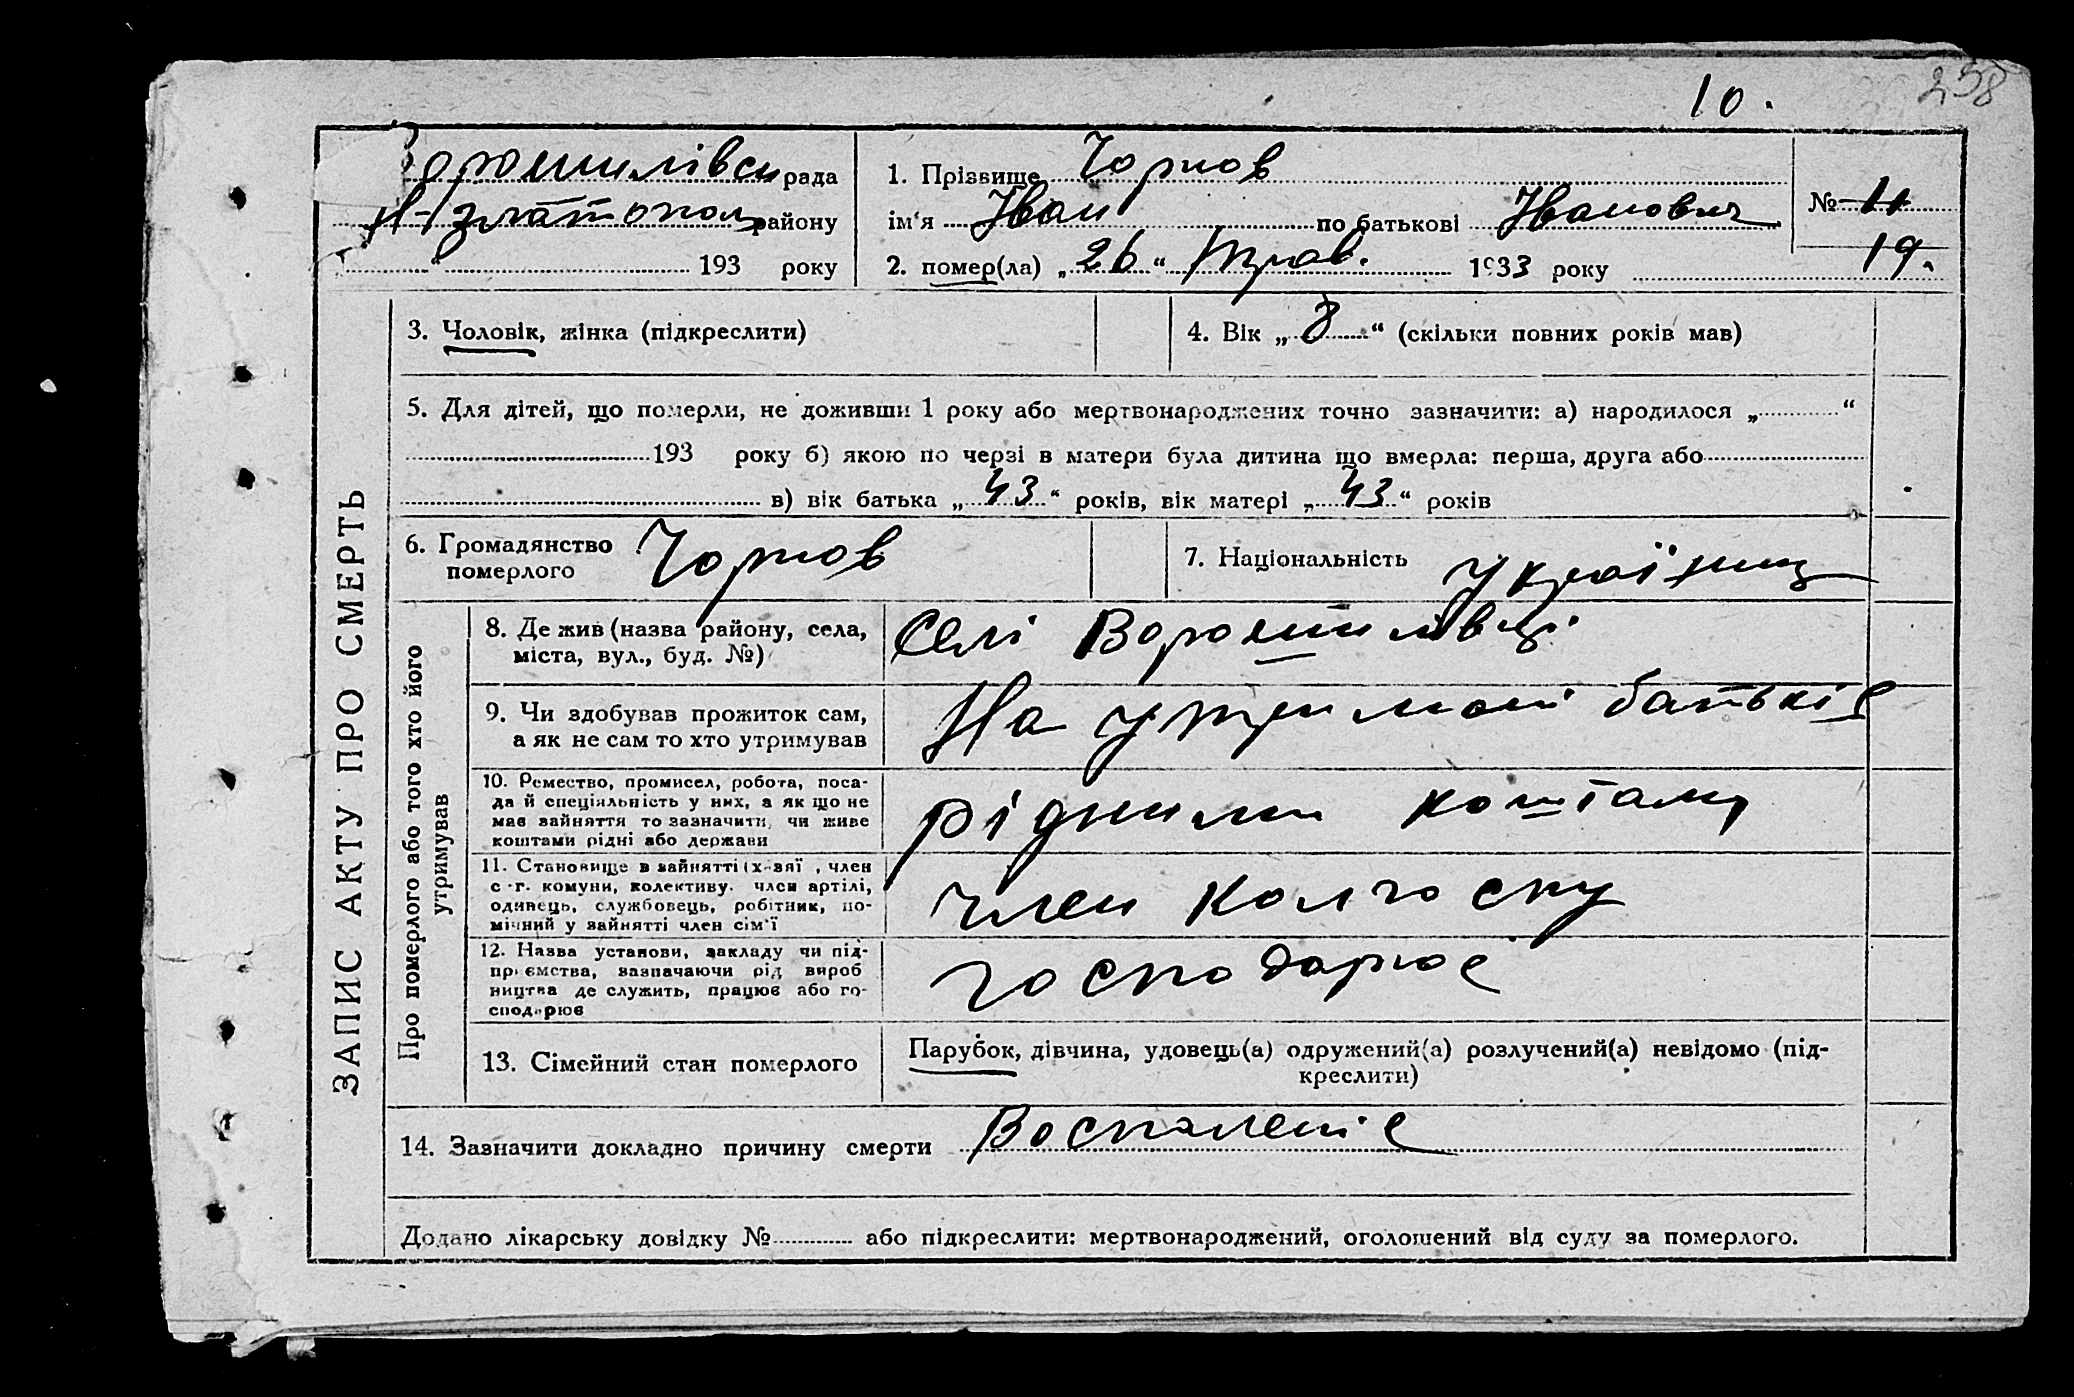 10.
258
Ворошилівськ рада
Н-Златопол району
„ “ 193 року
1. Прізвище Чорнов
ім‘я Іван по батькові Іванович
2. помер(ла) „ 26 “ Трав. 1933 року
№ 11
19.
ЗАПИС АКТУ ПРО СМЕРТЬ
3. Чоловік, жінка (підкреслити)
4. Вік „ 8 “ (скільки повних років мав)
5. Для дітей, що померли, не доживши 1 року або мертвонароджених точно зазначити: а) народилося „ “
193 року б) якою по черзі в матери була дитина що вмерла: перша, друга або
в) вік батька „ 43 “ років, вік матері „ 43 “ років
6. Громадянство
померлого
Чорнов
7. Національність Українц
Про померлого або того хто його
утримував
8. Де жив (назва району, села,
міста, вул., буд. №)
Селі Ворошилівці
9. Чи здобував прожиток сам,
а як не сам то хто утримував
На утримані батьків
10. Ремество, промисел, робота, поса-
да й спеціяльність у них, а як що не
має зайняття то зазначити, чи живе
коштами рідні або держави
рідними коштами
11. Становище в зайнятті (х-зяї , член
с.-г. комуни, колективу, член артілі,
одинець, службовець, робітник, по-
мічний у зайнятті член сім‘ї
член колгоспу
12. Назва установи, закладу чи під-
приємства, зазначаючи рід вироб
ництва де служить, працює або го-
сподарює
господарює
13. Сімейний стан померлого
Парубок, дівчина, удовець(а) одружений(а) розлучений(а) невідомо (під-
креслити)
14. Зазначити докладно причину смерти Воспаленіє
Додано лікарську довідку № або підкреслити: мертвонароджений, оголошений від суду за померлого.